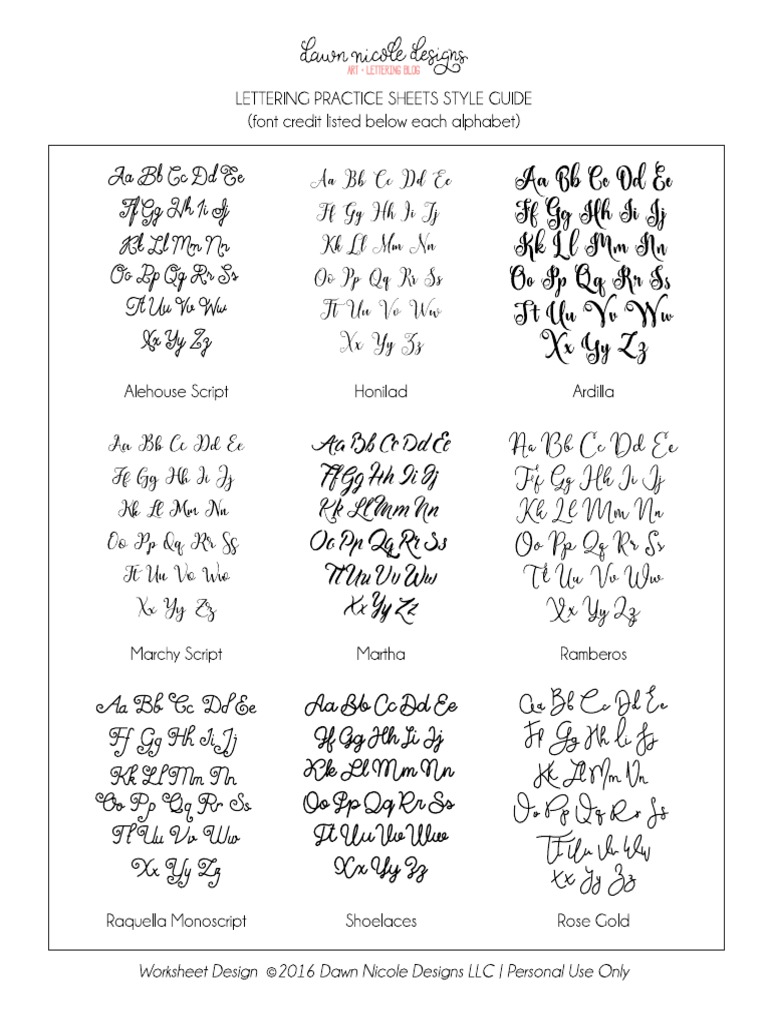 dawn nicole designs
ART + LETTERING BLOG
LETTERING PRACTICE SHEETS STYLE GUIDE
(font credit listed below each alphabet)
Aa Bb Cc Dd Ee
Ff Gg Hh Ii Jj
Kk Ll Mm Nn
Oo Pp Qq Rr Ss
Tt Uu Vv Ww
Xx Yy Zz
Alehouse Script
Aa Bb Cc Dd Ee
Ff Gg Hh Ii Jj
Kk Ll Mm Nn
Oo Pp Qq Rr Ss
Tt Uu Vv Ww
Xx Yy Zz
Honilad
Aa Bb Cc Dd Ee
Ff Gg Hh Ii Jj
Kk Ll Mm Nn
Oo Pp Qq Rr Ss
Tt Uu Vv Ww
Xx Yy Zz
Ardilla
Aa Bb Cc Dd Ee
Ff Gg Hh Ii Jj
Kk Ll Mm Nn
Oo Pp Qq Rr Ss
Tt Uu Vv Ww
Xx Yy Zz
Marchy Script
Aa Bb Cc Dd Ee
Ff Gg Hh Ii Jj
Kk Ll Mm Nn
Oo Pp Qq Rr Ss
Tt Uu Vv Ww
Xx Yy Zz
Martha
Aa Bb Cc Dd Ee
Ff Gg Hh Ii Jj
Kk Ll Mm Nn
Oo Pp Qq Rr Ss
Tt Uu Vv Ww
Xx Yy Zz
Ramberos
Aa Bb Cc Dd Ee
Ff Gg Hh Ii Jj
Kk Ll Mm Nn
Oo Pp Qq Rr Ss
Tt Uu Vv Ww
Xx Yy Zz
Raquella Monoscript
Aa Bb Cc Dd Ee
Ff Gg Hh Ii Jj
Kk Ll Mm Nn
Oo Pp Qq Rr Ss
Tt Uu Vv Ww
Xx Yy Zz
Shoelaces
Aa Bb Cc Dd Ee
Ff Gg Hh Ii Jj
Kk Ll Mm Nn
Oo Pp Qq Rr Ss
Tt Uu Vv Ww
Xx Yy Zz
Rose Gold
Worksheet Design ©2016 Dawn Nicole Designs LLC | Personal Use Only